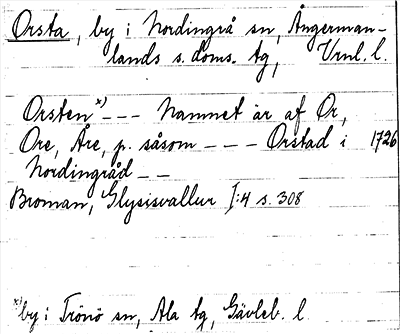 Orsta, by i Nordingrå sn, Ångerman-
lands s. doms. tg, Vrnl. l.
Orsten*) --- Namnet är af Or,
Ore, Åre, p. såsom --- Orstad i 1726
Nordingråd --
Broman, Glysisvallur I:4 s. 308
*) by i Trönö sn, Ala tg, Gävleb. l